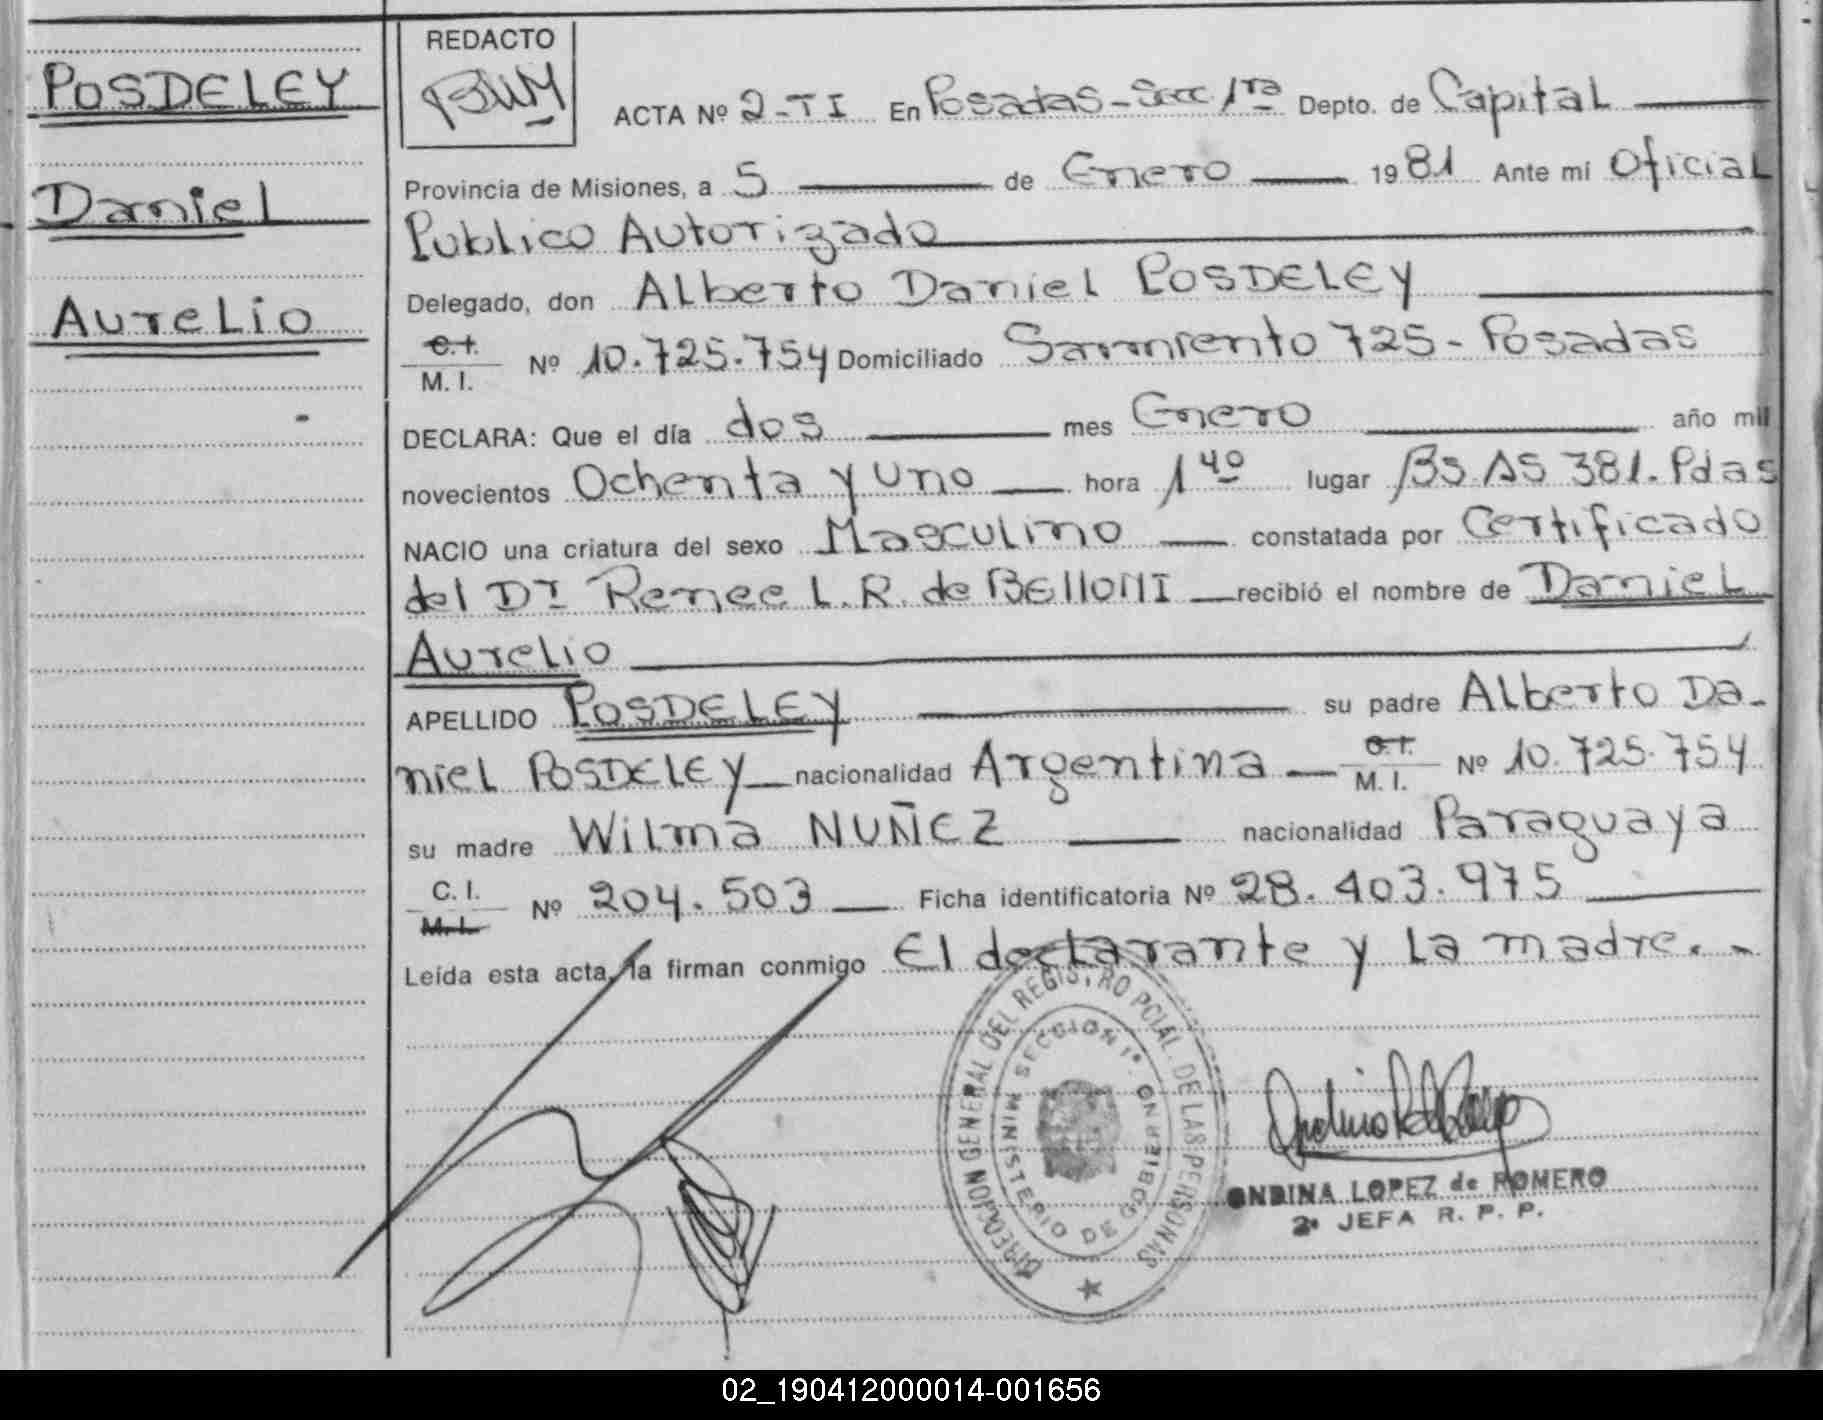 POSDELEY
Daniel
Aurelio
REDACTO
ACTA Nº 2-TI En Posadas-Secc 1ra Depto. de Capital
Provincia de Misiones, a 5 de Enero 1981 Ante mi Oficial
Publico Autorizado
Delegado, don Alberto Daniel POSDELEY
C.I. M. I. Nº 10.725.754 Domiciliado Sarmiento 725-Posadas
DECLARA: Que el día dos mes Enero año mil
novecientos Ochenta y uno hora 1 40 lugar Bs.As 381. Pdas
NACIO una criatura del sexo Masculino constatada por Certificado
del Dr Renee L.R. de BELLONI recibió el nombre de Daniel
Aurelio
APELLIDO POSDELEY su padre Alberto Da-
niel POSDELEY nacionalidad Argentina C.I. M. I. Nº 10.725.754
su madre Wilma NUÑEZ nacionalidad Paraguaya
C. I. M. I. Nº 204.503 Ficha identificatoria Nº 28.403.975
Leída esta acta, la firman conmigo El declarante y La madre.-
DIRECCION GENERAL DEL REGISTRO PCIAL. DE LAS PERSONAS
SECCION 1ª
MINISTERIO DE GOBIERNO
ONDINA LOPEZ de ROMERO
2ª JEFA R. P. P.
02_190412000014-001656